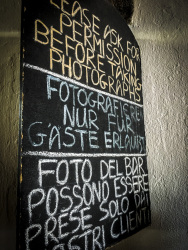 LEASE ASK FOR
PERMISSION
BEFORE TAKING
PHOTOGRAPHS
FOTOGRAFIEREN
NUR FÜR
GÄSTE ERLAUBT
FOTO DEL BAR
POSSONO ESSERE
PRESE SOLO DAI
NOSTRI CLIENTI